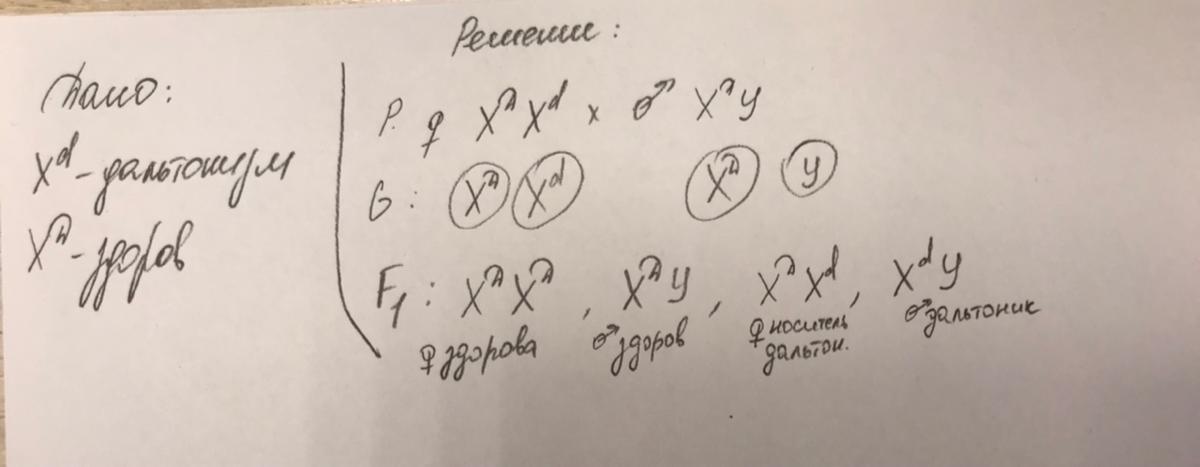 Решение:
Дано:
Xᵈ - дальтонизм
Xᴰ - здоров
P. ♀ XᴰXᵈ × ♂ XᴰY
G: Xᴰ Xᵈ Xᴰ Y
F₁: XᴰXᴰ, XᴰY, XᴰXᵈ, XᵈY
♀ здорова ♂ здоров ♀ носитель дальтон. ♂ дальтоник